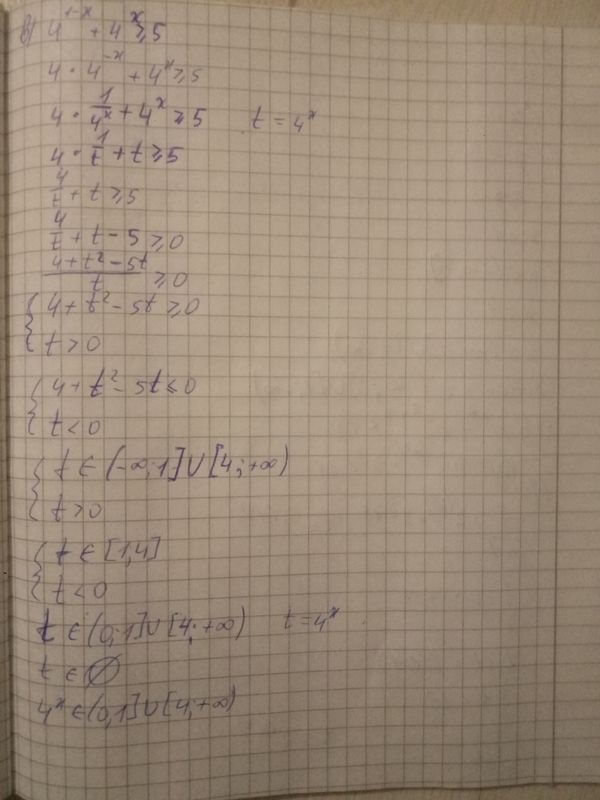 в) 4^{1-x} + 4^x ≥ 5
4 · 4^{-x} + 4^x ≥ 5
4 · 1/4^x + 4^x ≥ 5 t = 4^x
4 · 1/t + t ≥ 5
4/t + t ≥ 5
4/t + t - 5 ≥ 0
(4 + t² - 5t)/t ≥ 0
{ 4 + t² - 5t ≥ 0
t > 0
{ 4 + t² - 5t ≤ 0
t < 0
{ t ∈ (-∞; 1] ∪ [4; +∞)
t > 0
{ t ∈ [1, 4]
t < 0
t ∈ (0; 1] ∪ [4; +∞) t = 4^x
t ∈ ∅
4^x ∈ (0, 1] ∪ [4; +∞)